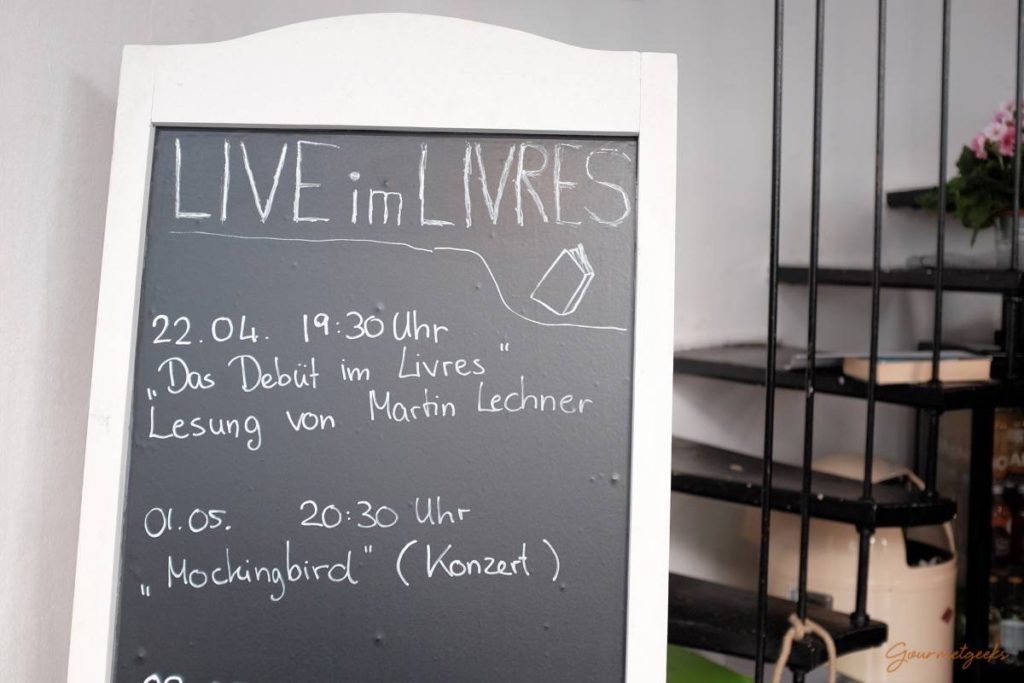 LIVE im LIVRES
22.04. 19:30 Uhr
„Das Debüt im Livres"
Lesung von Martin Lechner
01.05. 20:30 Uhr
„Mockingbird" (Konzert)
Gourmetgeeks